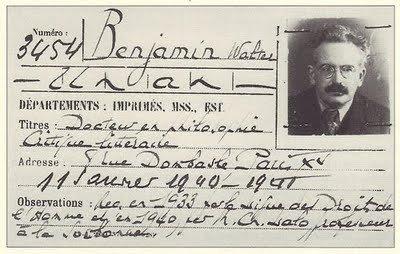 Numéro :
3454 Benjamin Walter
— Un an —
DÉPARTEMENTS : IMPRIMÉS, MSS., EST.
Titres : Docteur en philosophie
Critique littéraire
Adresse : rue Dombasle Paris XV
11 Janvier 1940 - 1941
Observations : rec. en 1933 par la Ligue des Droits de
l'Homme et en 1940 par professeur
à la Sorbonne.